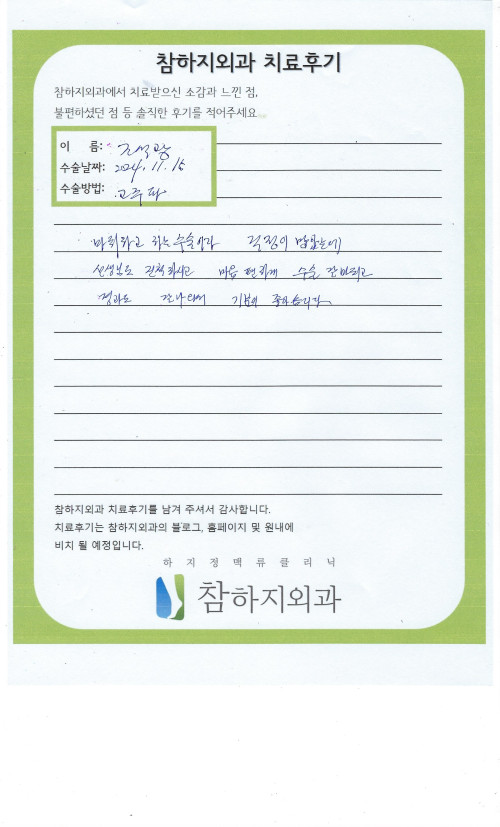 참하지외과 치료후기
참하지외과에서 치료받으신 소감과 느낀 점,
불편하셨던 점 등 솔직한 후기를 적어주세요
이 름: 조석광
수술날짜: 2024. 11. 15
수술방법: 고주파
마취하고 하는 수술이라 걱정이 많았는데
선생님도 친절하시고 마음 편하게 수술 잘마치고
결과도 잘나와서 기분이 좋았습니다
참하지외과 치료후기를 남겨 주셔서 감사합니다.
치료후기는 참하지외과의 블로그, 홈페이지 및 원내에
비치 될 예정입니다.
하지정맥류클리닉
참하지외과